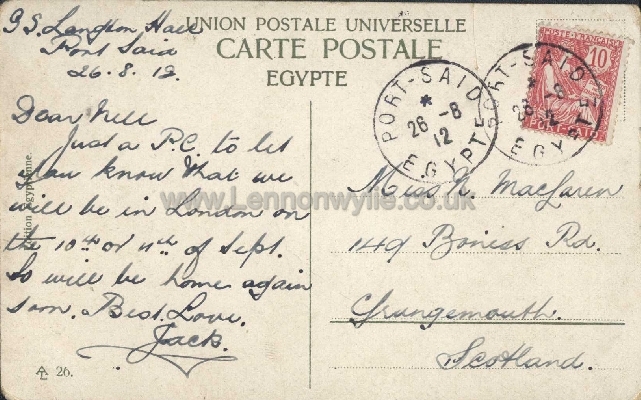 SS. Langton Hall
Port Said
26.8.12.
UNION POSTALE UNIVERSELLE
CARTE POSTALE
EGYPTE
Dear Nell
Just a P.C. to let
you know that we
will be in London on
the 10th or 11th of Sept.
So will be home again
soon. Best Love.
Jack.
26.
Edition égyptienne.
PORT-SAID
*
26 -8
12
EGYPTE
PORT-SAID
*
26 -8
12
EGYPTE
POSTE FRANÇAISE
10
PORT-SAID
Miss N. MacLaren
149 Boness Rd.
Grangemouth.
Scotland.
www.Lennonwylie.co.uk